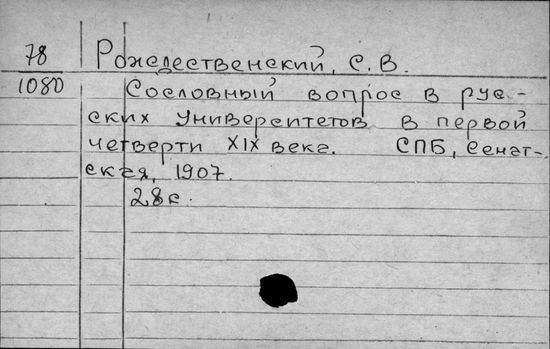 78 Рождественский, С.В.
1080 Сословный вопрос в рус-
ских университетов в первой
четверти XIX века. СПБ, Сенат-
ская, 1907.
28с.